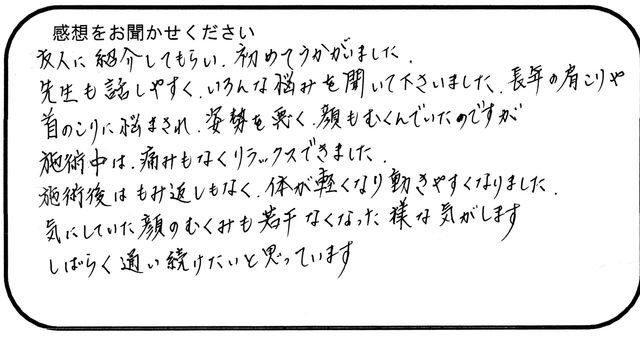 感想をお聞かせください
友人に紹介してもらい、初めてうかがいました。
先生も話しやすく、いろんな悩みを聞いて下さいました。長年の肩こりや
首のこりに悩まされ、姿勢も悪く、顔もむくんでいたのですが
施術中は、痛みもなくリラックスできました。
施術後はもみ返しもなく、体が軽くなり動きやすくなりました。
気にしていた顔のむくみも若干なくなった様な気がします
しばらく通い続けたいと思っています